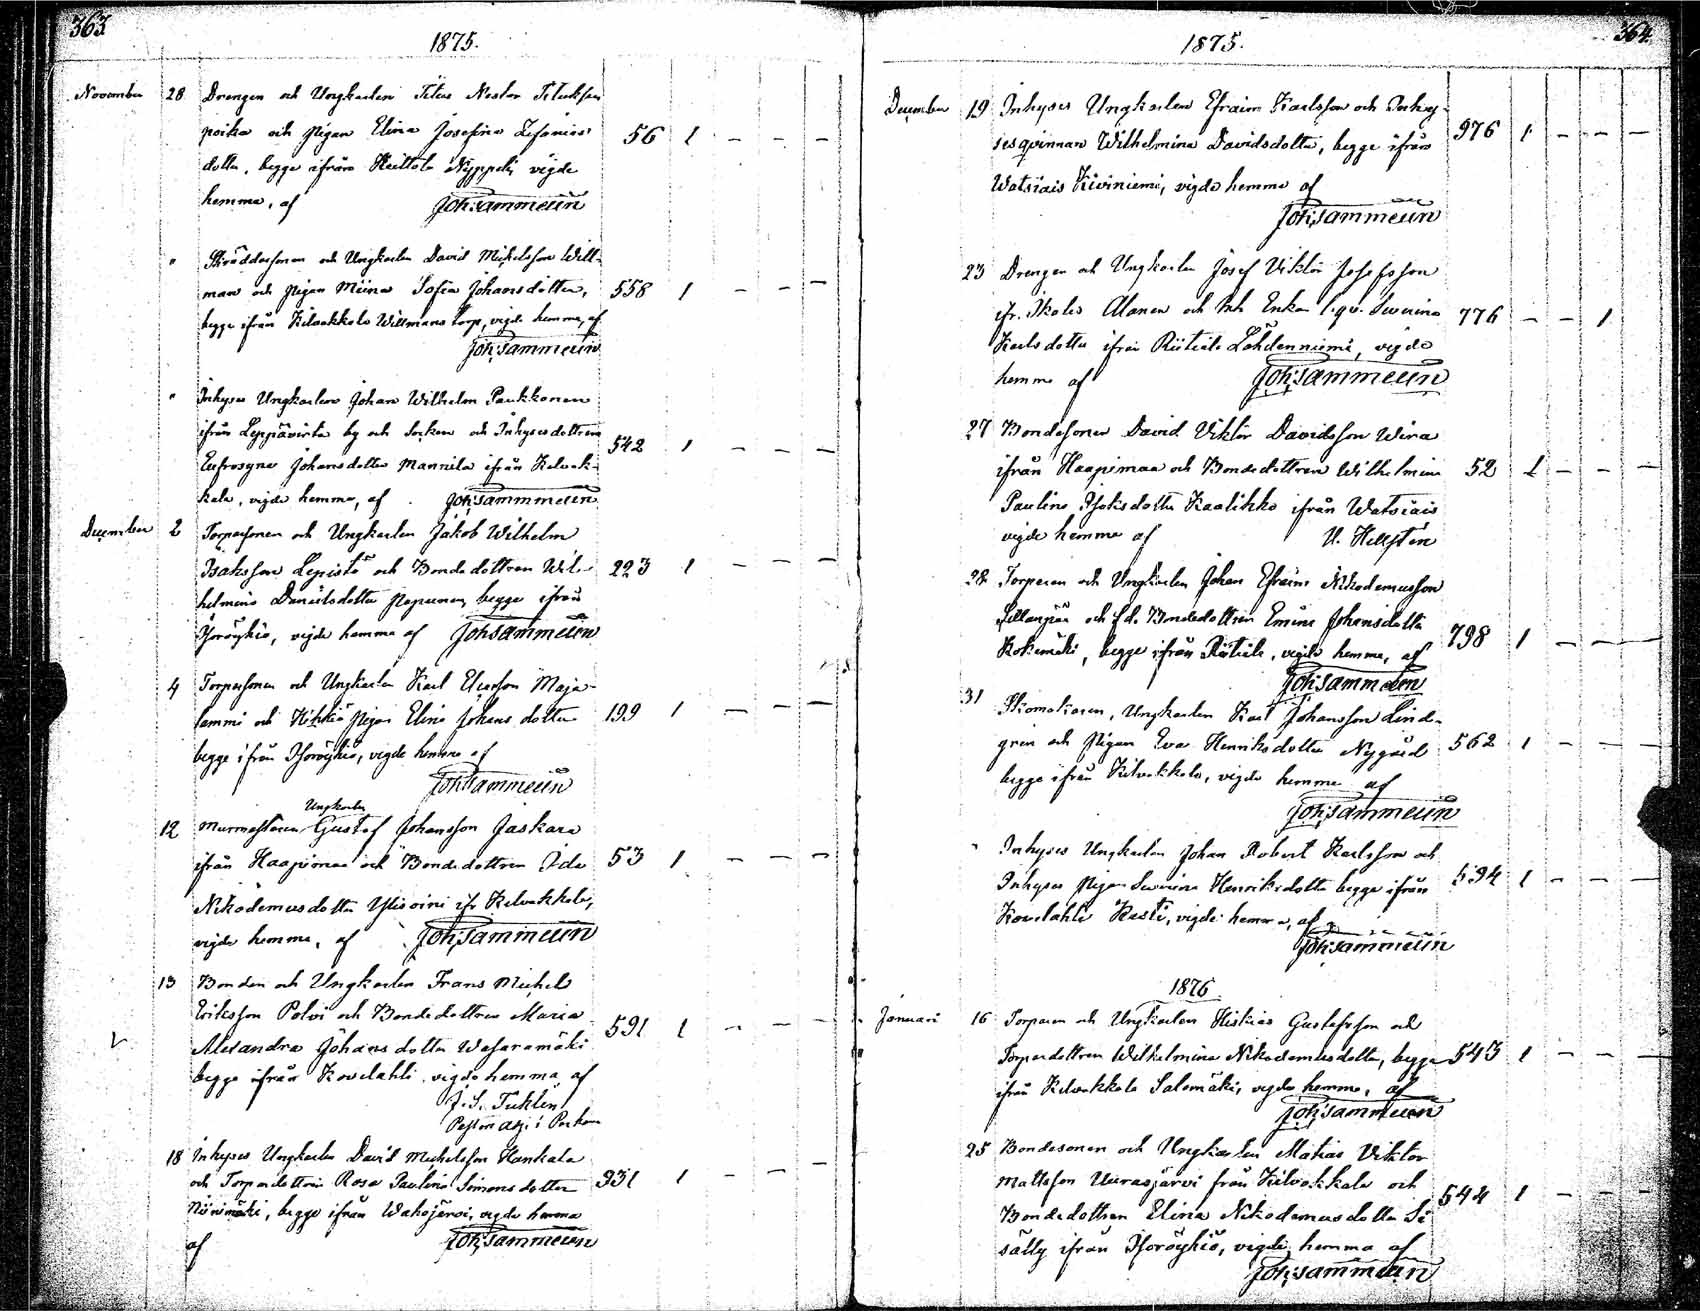 363
1875.
November 28 Drengen och Ungkarlen Titus Nestor Tituksen
poika och Pigan Elina Josefina Zefanias
dotter, begge ifrån Keittola Nyppeli vigde 56 1 – – –
hemma, af Joh:Sammelin
" Skräddaresonen och Ungkarlen David Mickelsson Will-
man och Pigan Miina Sofia Johansdotter, 558 1 – – –
begge ifrån Kilvakkola Willmans torp, vigde hemma, af
Joh:Sammelin
" Inhyses Ungkarlen Johan Wilhelm Paukkonen
ifrån Leppävirta by och Socken och Inhysesdottren
Eufrosyne Johansdotter Mannila ifrån Kilvak- 542 1 – – –
kala, vigde hemma, af Joh:Sammelin
December 2 Torparsonen och Ungkarlen Jakob Wilhelm
Isaksson Lepistö och Bondedottren Wil- 223 1 – – –
helmina Danielsdotter Papunen, begge ifrån
Isoröyhiö, vigde hemma af Joh:Sammelin
4 Torparsonen och Ungkarlen Karl Maja-
lammi och Pigan Elina Johansdotter 199 1 – – –
begge ifrån Isoröyhiö, vigde hemma af
Joh:Sammelin
Ungkarlen
12 Murmästaren Gustaf Johansson Jaskara
ifrån Haapimaa och Bondedottren Ida 53 1 – – –
Nikodemusdotter Ylisoini ifr. Kilvakkola,
vigde hemma, af Joh:Sammelin
13 Bonden och Ungkarlen Frans Michel
Eriksson Polvi och Bondedottren Maria 591 1 – – –
Alexandra Johansdotter Wasaramäki
begge ifrån Kovelahti vigde hemma af
Pastor adj: i
18 Inhyses Ungkarlen David Michelsson Hankala
och Torparedottren Rosa Paulina Simonsdotter 931 1 – – –
Niinimäki, begge ifrån Wahojärvi, vigde hemma
af Joh:Sammelin
364
1875.
December 19 Inhyses Ungkarlen Efraim Karlsson och Inhy-
sesqvinnan Wilhelmina Davidsdotter, begge ifrån 976 1 – – –
Watsiais Kiviniemi, vigde hemma af
Joh:Sammelin
23 Drengen och Ungkarlen Josef Viktor Josefsson
ifr. Ikalis Alanen och Inh. Enkan l.qv. Severina 776 – – 1
Karlsdotter ifrån Riitiala Löhdenniemi, vigde
hemma af Joh:Sammelin
27 Bondesonen David Viktor Davidsson Wina
ifrån Haapimaa och Bondedottren Wilhelmina 52 1 – – –
Paulina Isaksdotter Kaalikko ifrån Watsiais
vigde hemma af U. Hellstén
28 Torparen och Ungkarlen Johan Efraim Nikodemusson
Sillanpää och f.d. Bondedottren Emina Johansdotter 798 1 – – –
Kokinmäki, begge ifrån Riitiala, vigde hemma, af
Joh:Sammelin
31 Skomakaren, Ungkarlen Karl Johansson Lind-
gren och Pigan Eva Henriksdotter Nygård 562 1 – – –
begge ifrån Kilvakkola, vigde hemma af
Joh:Sammelin
" Inhyses Ungkarlen Johan Robert Karlsson och
Inhyses Pigan Severina Henriksdotter begge ifrån 594 1 – – –
Kovelahti Kesti, vigde hemma, af
Joh:Sammelin
1876
Januari 16 Torparen och Ungkarlen Hiskias Gustafsson och
Torparedottren Wilhelmina Nikodemusdotter, begge 543 1 – – –
ifrån Kilvakkola Salomäki, vigde hemma, af
Joh:Sammelin
25 Bondesonen och Ungkarlen Matias Viktor
Mattsson Uurasjärvi från Kilvakkala och 544 1 – – –
Bondedottren Elina Nikodemusdotter Si
sätty ifrån Isoröyhiö, vigde hemma af
Joh:Sammelin